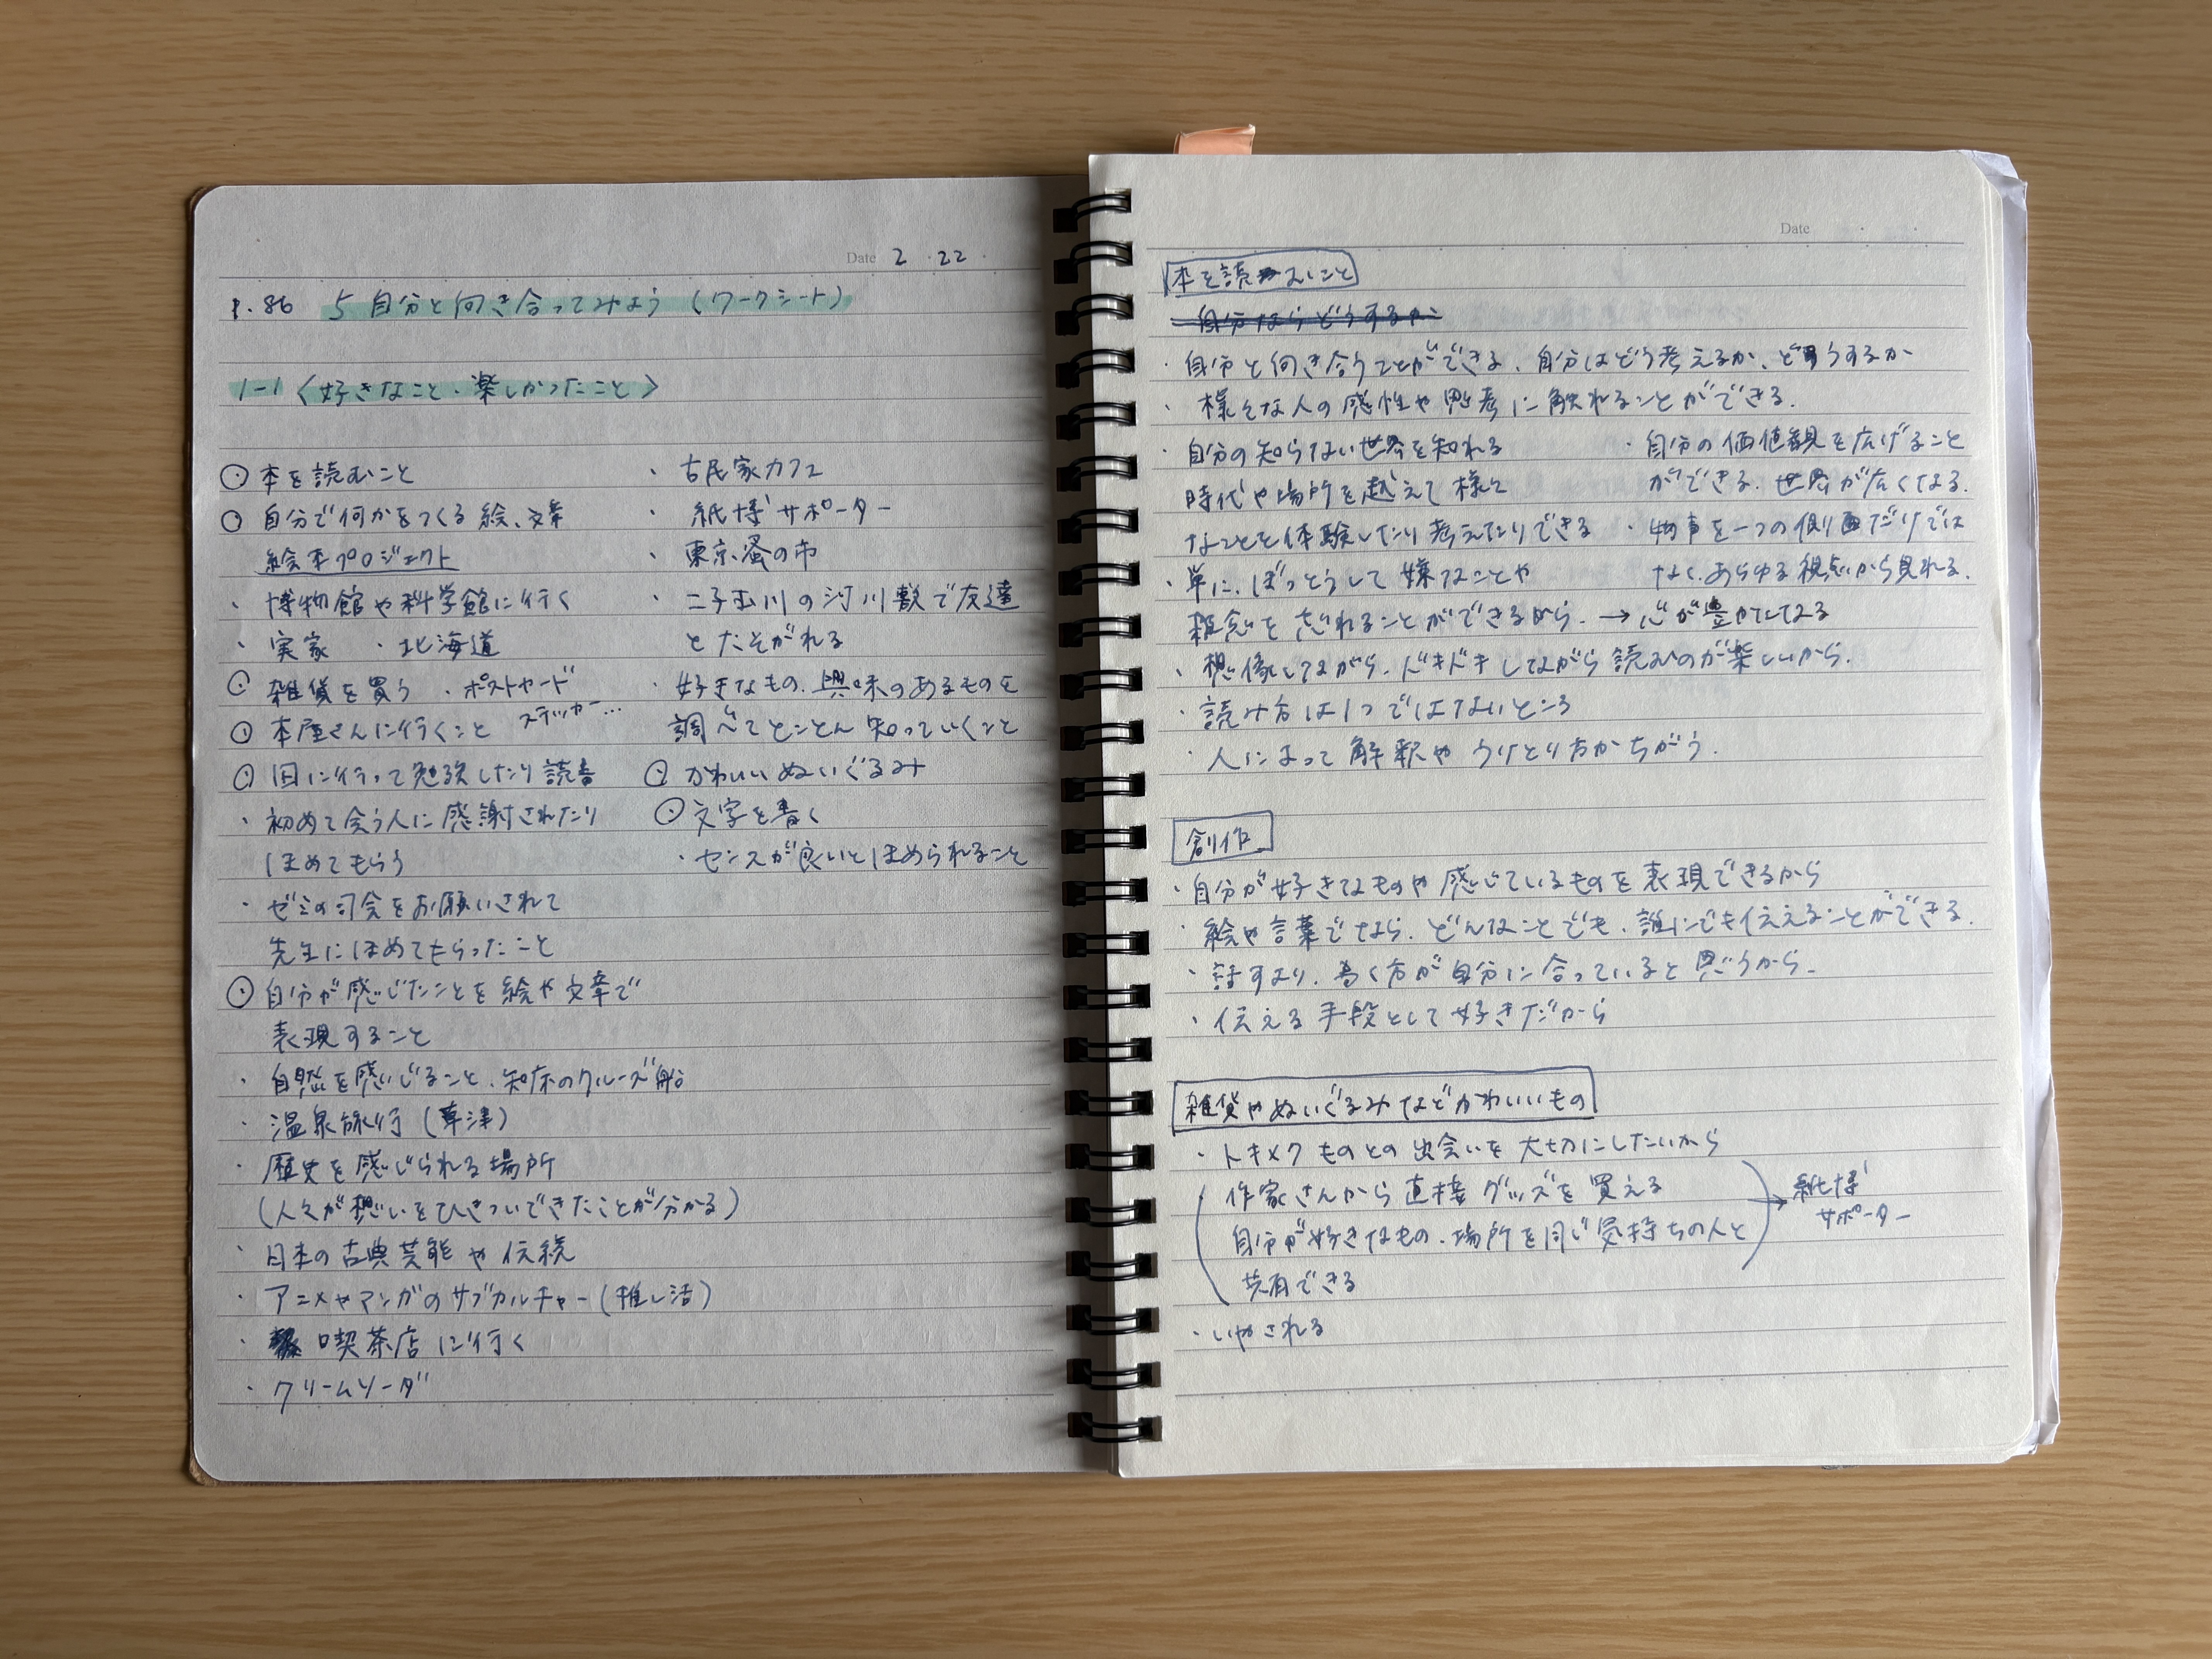 Date 2 . 22 .
P.86 5 自分と向き合ってみよう (ワークシート)
1-1 〈好きなこと・楽しかったこと〉
⊙ 本を読むこと
⊙ 自分で何かをつくる 絵、文章
絵本プロジェクト
・博物館や科学館に行く
・実家 ・北海道
⊙ 雑貨を買う ・ポストカード
ステッカー…
⊙ 本屋さんに行くこと
⊙ 図に行って勉強したり読書
・初めて会う人に感謝されたり
ほめてもらう
・ゼミの司会をお願いされて
先生にほめてもらったこと
⊙ 自分が感じたことを絵や文章で
表現すること
・自然を感じること、知床のクルーズ船
・温泉旅行 (草津)
・歴史を感じられる場所
(人々が想いをひきついできたことが分かる)
・日本の古典芸能や伝統
・アニメやマンガのサブカルチャー (推し活)
・喫茶店に行く
・クリームソーダ
・古民家カフェ
・紙博サポーター
・東京蚤の市
・二子玉川の河川敷で友達
とたそがれる
・好きなもの、興味のあるものを
調べてとことん知っていくこと
⊙ かわいいぬいぐるみ
⊙ 文字を書く
・センスが良いとほめられること
Date . .
本を読むこと
自分ならどうするか
・自分と向き合うことができる、自分はどう考えるか、どうするか
・様々な人の感性や思考に触れることができる.
・自分の知らない世界を知れる
時代や場所を越えて様々
なことを体験したり考えたりできる
・単に、ぼっとうして嫌なことや
雑念を忘れることができるから. → 心が豊かになる
・自分の価値観を広げること
ができる. 世界が広くなる.
・物事を一つの側面だけでは
なく、あらゆる視点から見れる.
・想像しながら、ドキドキしながら読むのが楽しいから.
・読み方は1つではないところ
・人によって解釈やうけとり方がちがう.
創作
・自分が好きなものや感じているものを表現できるから
・絵や言葉でなら、どんなことでも、誰にでも伝えることができる.
・話すより、書く方が自分に合っていると思うから.
・伝える手段として好きだから
雑貨やぬいぐるみなどかわいいもの
・トキメクものとの出会いを大切にしたいから
(作家さんから直接グッズを買える
自分が好きなもの、場所を同じ気持ちの人と
共有できる) → 紙博
サポーター
・いやされる